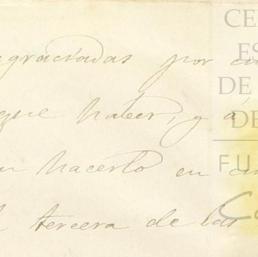 graciadas por
que haber, y á
hacerlo en
tercera de las
CE
ES
DE
DE
FU